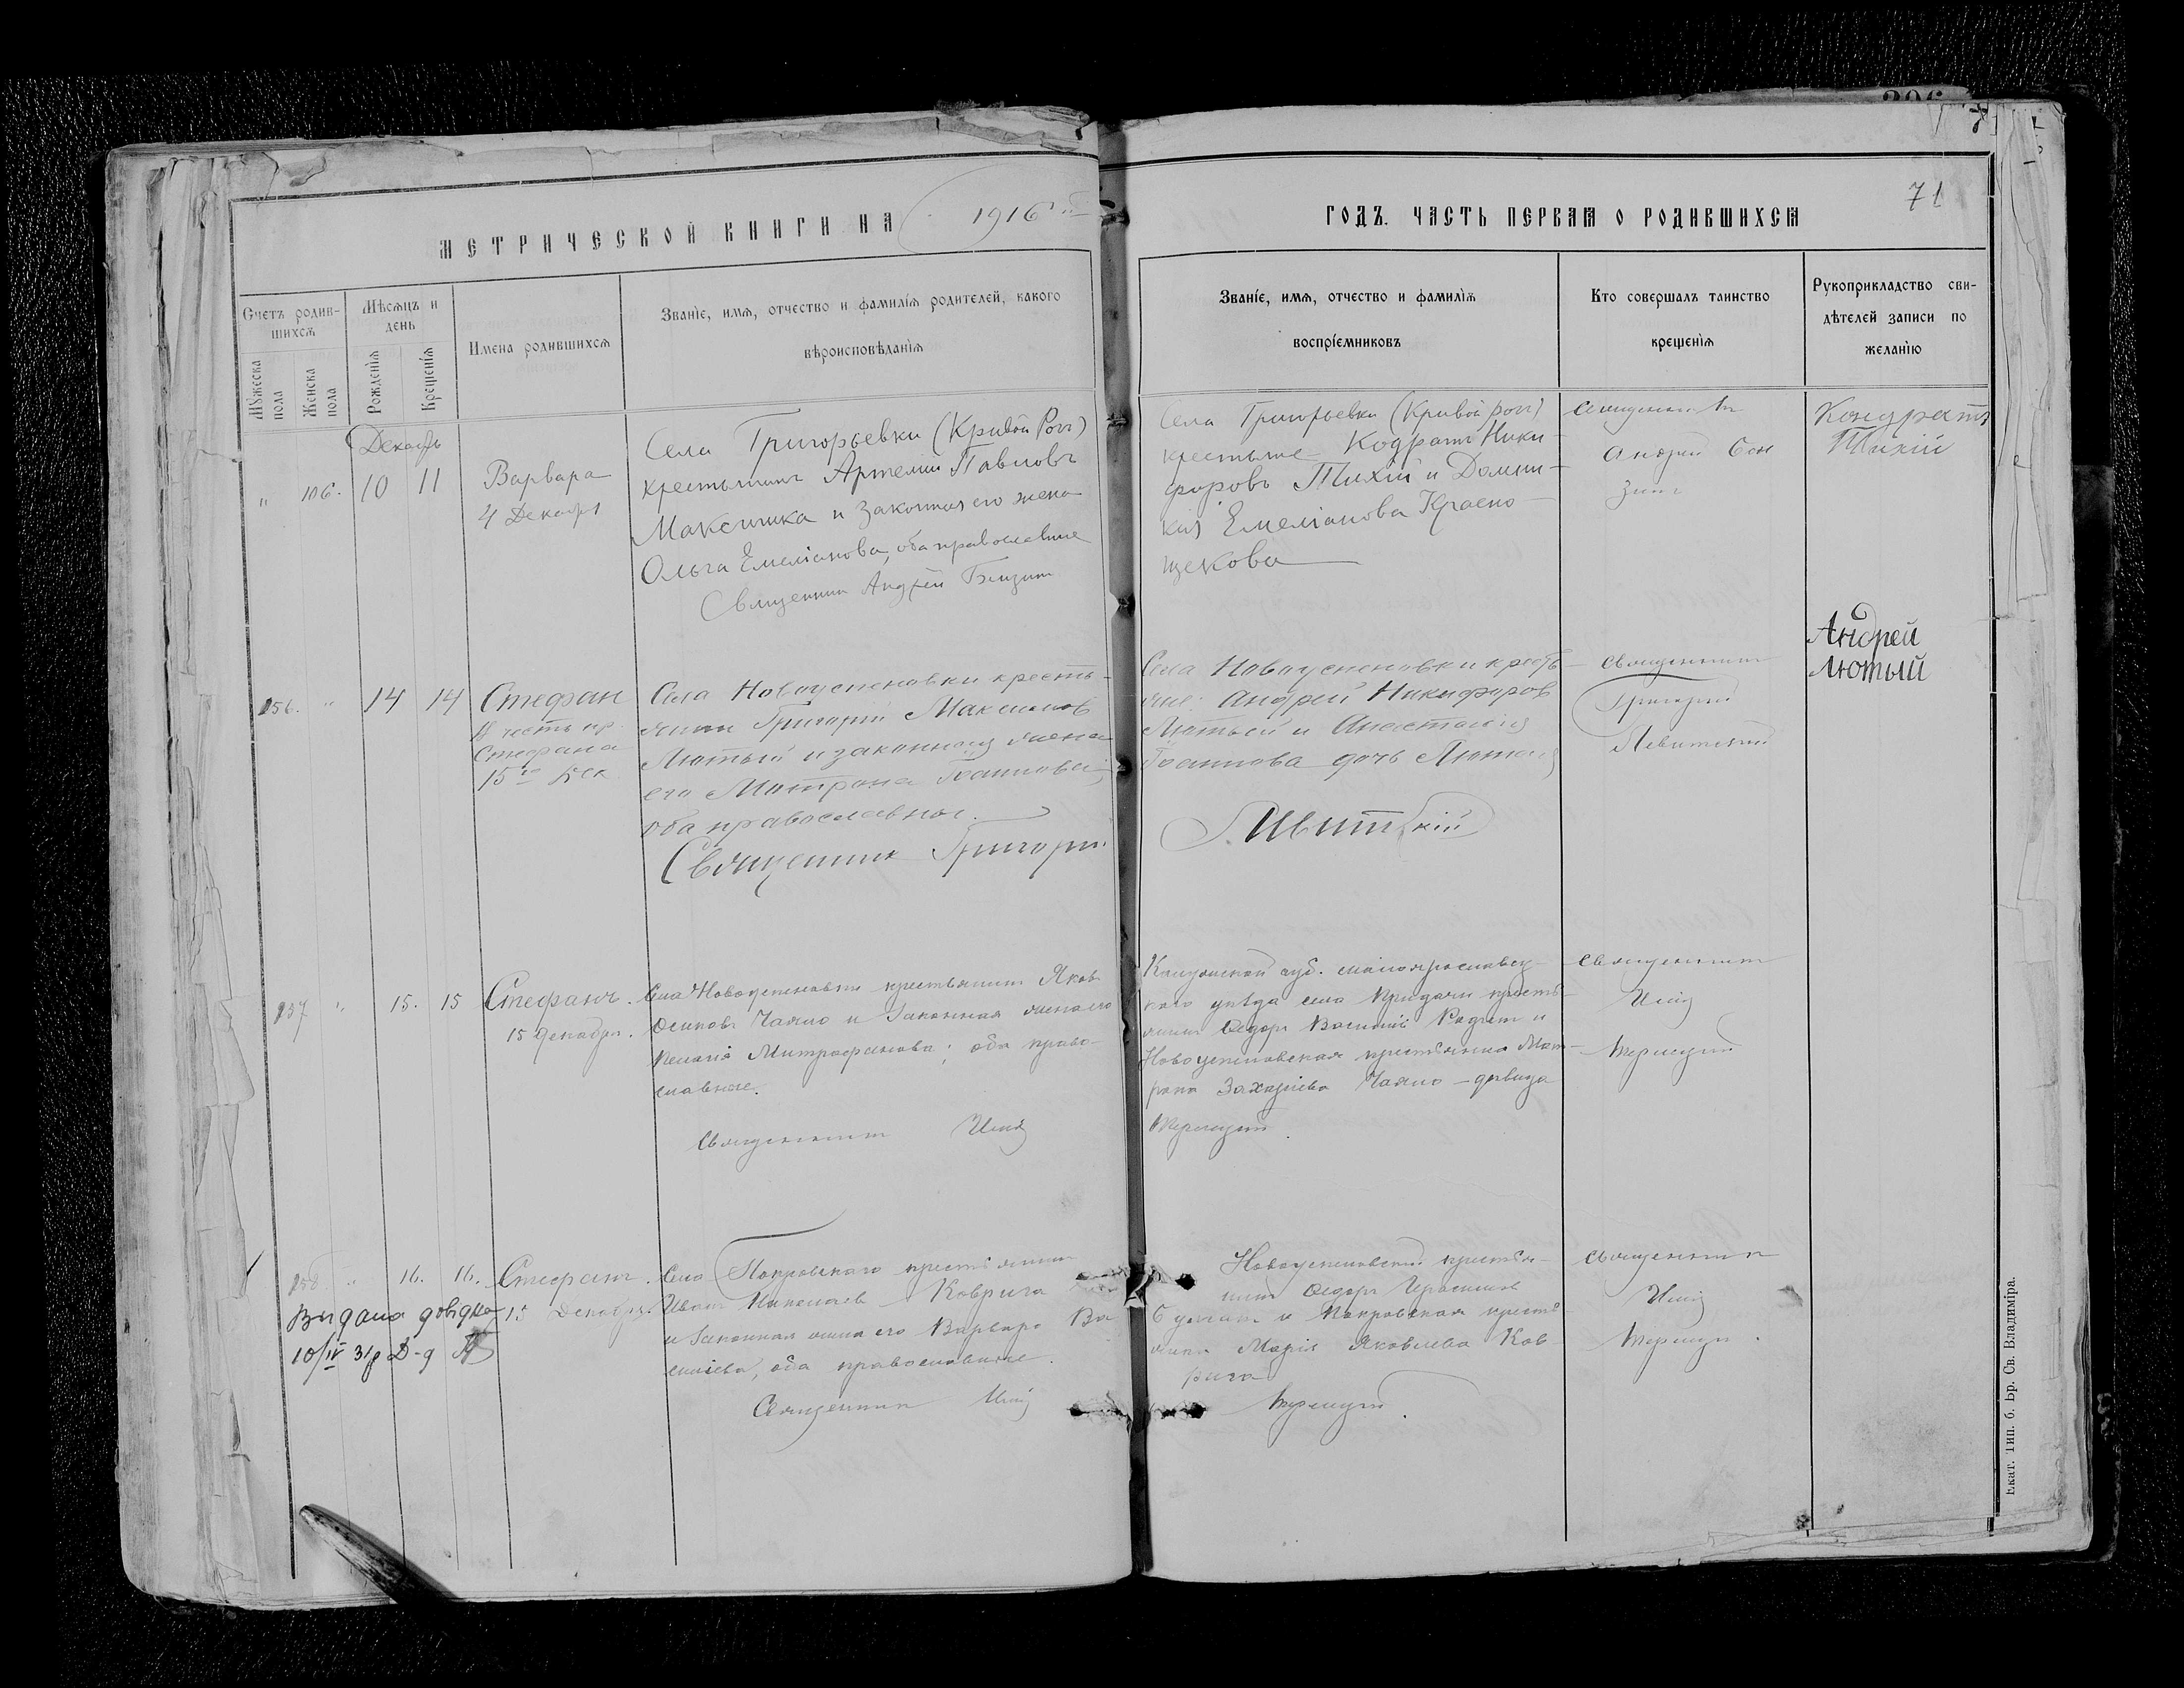 МЕТРИЧЕСКОЙ КНИГИ НА 1916
ГОДЪ. ЧАСТЬ ПЕРВАЯ О РОДИВШИХСЯ
71
Счетъ родив-
шихся
Мужеска
пола
Женска
пола
Мѣсяцъ и
день
Рожденія
Крещенія
Имена родившихся
Званіе, имя, отчество и фамилія родителей, какого
вѣроисповѣданія
Званіе, имя, отчество и фамилія
воспріемниковъ
Кто совершалъ таинство
крещенія
Рукоприкладство сви-
дѣтелей записи по
желанію
Декабрь
" 106. 10 11
Варвара
4 Декабря
Села Григорьевки (Кривой Рогъ)
крестьянинъ Артемій Павловъ
и законная его жена
Ольга Емеліанова, оба православные
Священник Андрей
Села Григорьевки (Кривой Рогъ)
крестьяне Кодрат Ники-
форовъ Тихій и Домни-
кія Емеліанова Красно-
щекова
Андрей
Кондратъ
Тихій
156. " 14 14
Стефан
В честь пр.
Стефана
15го Дек
Села Новоуспеновки кресть-
янин Григорій Максимов
Лютый и законная жена
его Матрона Іоаннова,
оба православные.
Священник Григорій
Села Новоуспеновки кресть-
яне: Андрей Никифоров
Лютый и Анастасія
Іоаннова дочь Лютая
Левитскій
Священник
Григорій
Левитскій
Андрей
Лютый
157 " 15. 15
Стефанъ.
15 декабря.
Села Новоуспеновки крестьянин Яков
и законная жена его
Пелагія Митрофанова; оба право-
славные.
Священник Илія
Калужской губ. малоярославец-
каго уѣзда села крестья-
нин Ѳедоръ и
Новоуспеновская крестьянка Мат-
рона девица
Священник
Илія
158 " 16. 16.
Стефанъ.
15 Декабря.
Видана довідка
10/IV 31р Д-д
Села Покровскаго крестьянин
Иван Николаев Коврига
и законная жена его Варвара Ва
силіева, оба православные.
Священник Илія
Новоуспеновскій крестья-
нин Ѳедоръ Герасимов
и Покровская крестья
янка Марія Яковлева Ков-
рига
Священник
Илія
Екат. Тип. б. Бр. Св. Владиміра.